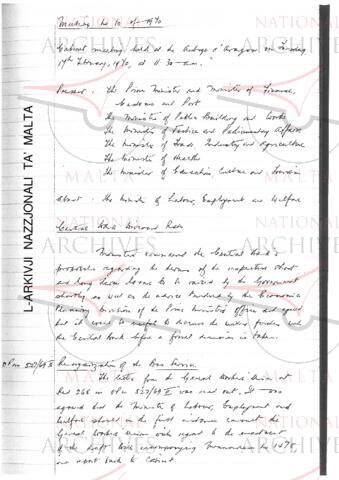 Meeting No 10 of 1970
Cabinet meeting held at the Auberge d'Aragon on Tuesday
17th February, 1970, at 11.30 a.m.
Present - The Prime Minister and Minister of Finance,
Customs and Port
The Minister of Public Building and Works
The Minister of Justice and Parliamentary Affairs
The Minister of Trade, Industry and Agriculture
The Minister of Health
The Minister of Education, Culture and Tourism
Absent - The Minister of Labour, Employment and Welfare
Central Bank
Ministers considered the Central Bank's
proposals regarding the terms of the respective short
and long term loans to be raised by the Government
shortly as well as the advice tendered by the Economic
Planning Division of the Prime Minister's Office and agreed
that it would be useful to discuss the matter further with
the Central Bank before a formal decision is taken.
OPM 527/69 II Reorganization of the Bus Service
The letter from the General Workers' Union at
Red 268 in OPM 527/69 II was read out. It was
agreed that the Minister of Labour, Employment and
Welfare should in the first instance consult the
General Workers Union with regard to the
of the draft Bill accompanying Memorandum No
and report back to Cabinet.
L-ARKIVJI NAZZJONALI TA' MALTA
NATIONAL
ARCHIVES
MALTA